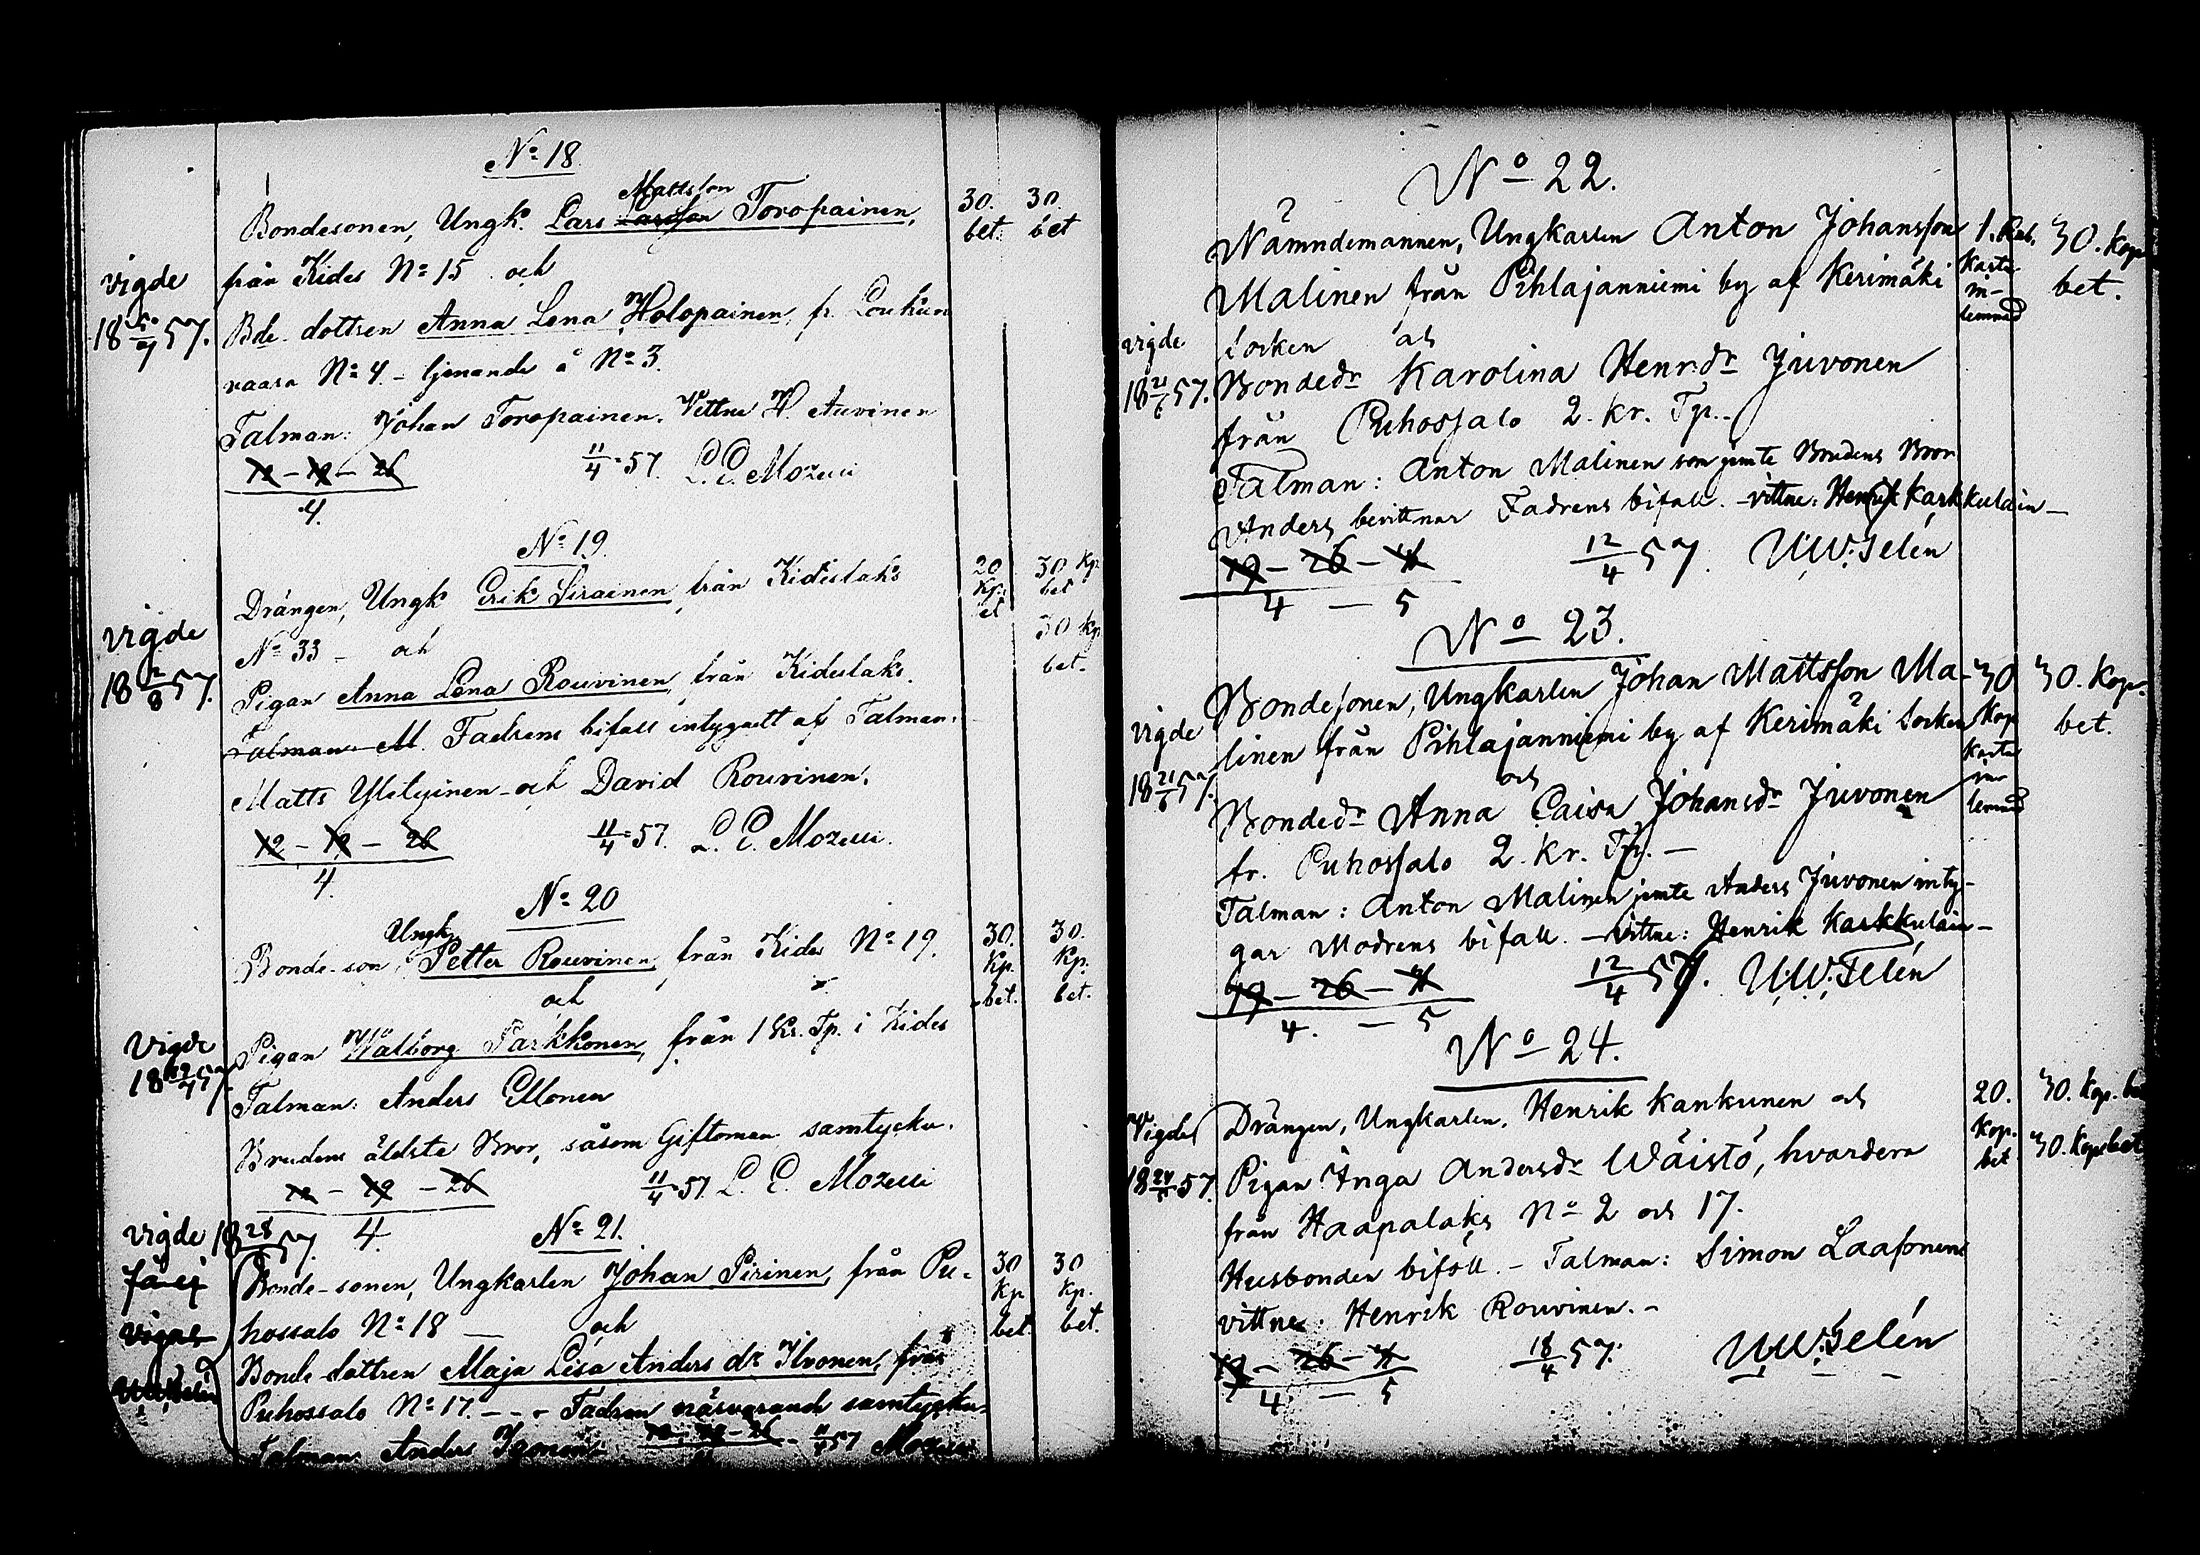 No 18.
Mattsson
Bondesonen, Ungk. Lars Larsson Toropainen,
från Kides No 15 och
Bde dottren Anna Lena Holopainen fr. Loukun
vaara No 4 - tjenande å No 3.
Talman: Johan Toropainen. Vittne H. Auvinen
12 - 19 - 26
4.
11/4 57. L. E. Mozelli
vigde
57.
30. bet.
30. bet
No 19.
Drängen, Ungk Erik Sirainen från Kideslaks
No 33 - och
Pigan Anna Lena Rouvinen från Kideslaks.
Talman M. Fadrens bifall intygadt af Talman.
Matts Yletyinen och David Rouvinen.
12 - 19 - 26
4
11/4 57. L. E. Mozelli.
vigde
18 12/8 57.
20 Kp. bet
30 Kp bet
30 Kp bet.
No 20
Ungk.
Bonde-son, Petter Rouvinen, från Kides No 19.
och
Pigan Walborg Parkkonen, från 1 Kr. Tp. i Kides
Talman: Anders Ellonen
Brudens äldste Bror, såsom Giftoman samtycke.
12 - 19 - 26
4.
11/4 57 L. E. Mozelli
Vigde
30. Kp. bet.
30. Kp. bet.
No 21.
Bonde-sonen, Ungkarlen Johan Pirinen, från Pu-
hossalo No 18 — och
Bonde dottren Maja Lisa Anders dr Ilvonen, från
Puhossalo No 17. - - - Fadren närvarande samtycker.
Talman: Anders
12 - 19 - 26
11/4 57 Mozelli
vigde 18 28 57.
få ej
vigas
30 Kp bet.
30 Kp. bet.
No 22.
Nämndemannen, Ungkarlen Anton Johansson
Malinen från Pihlajanniemi by af Kerimäki
Socken och
Bondedr Karolina Henrdr Juvonen
från Puhossalo 2. Kr. Tp.-
Talman: Anton Malinen som jemte Brudens Bror
Anders bevittnar Fadrens bifall. - vittne: Henrik Karkkulain-
19 - 26 - 4
4 — 5
12/4 57. U.W. Telén
vigde
18 21/6 57.
1. Rub. Karta in- lemnad
30. Kop bet.
No 23.
Bondesonen, Ungkarlen Johan Mattsson Ma-
linen från Pihlajanniemi by af Kerimäki Socken
och
Bondedr Anna Caisa Johansdr Juvonen
fr. Puhossalo 2. Kr. Tp. -
Talman: Anton Malinen jemte Anders Juvonen inty-
gar Modrens bifall. - vittne: Henrik Karkkulain-
19 - 26 - 4
4. — 5
12/4 57. U.W. Telén
vigde
18 21/6 57.
30 Kop Karta in- lemnad
30. Kop. bet.
No 24.
Drängen, Ungkarlen, Henrik Kankunen och
Pigan Inga Andersdr Wäistö, hvardera
från Haapalaks No 2 och 17.
Husbonden bifall. - Talman: Simon Laasonen
vittne: Henrik Rouvinen. -
19 - 26 - 4
4 — 5
18/4 57. U.W. Telén
Vigde
57.
20. Kop. bet
30. Kop. bet
30. Kop bet